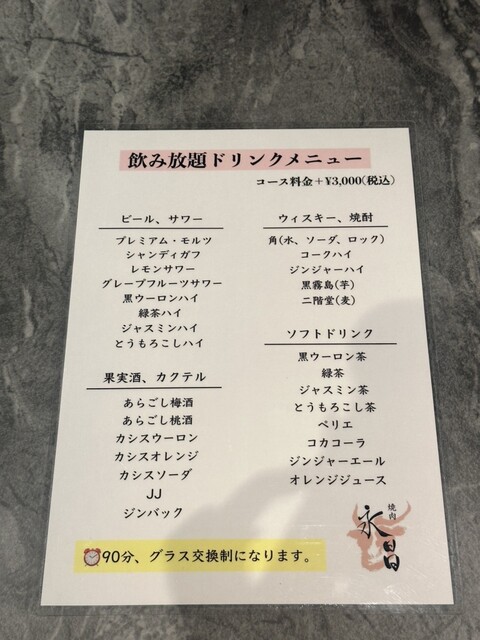 飲み放題ドリンクメニュー
コース料金+¥3,000(税込)
ビール、サワー
プレミアム・モルツ
シャンディガフ
レモンサワー
グレープフルーツサワー
黒ウーロンハイ
緑茶ハイ
ジャスミンハイ
とうもろこしハイ
果実酒、カクテル
あらごし梅酒
あらごし桃酒
カシスウーロン
カシスオレンジ
カシスソーダ
JJ
ジンバック
ウィスキー、焼酎
角(水、ソーダ、ロック)
コークハイ
ジンジャーハイ
黒霧島(芋)
二階堂(麦)
ソフトドリンク
黒ウーロン茶
緑茶
ジャスミン茶
とうもろこし茶
ペリエ
コカコーラ
ジンジャーエール
オレンジジュース
90分、グラス交換制になります。
焼肉
永昌